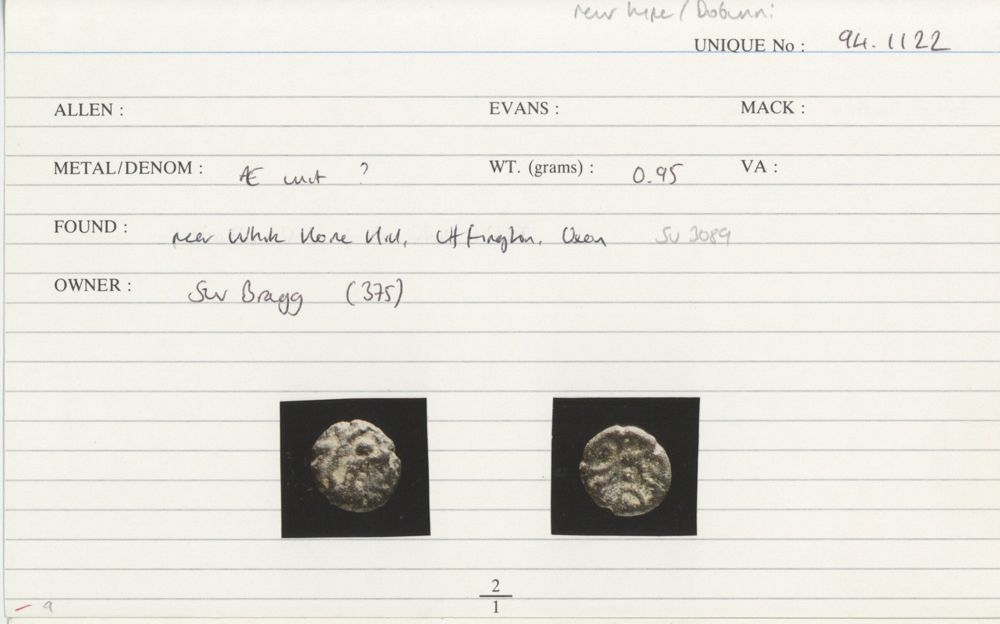 new type / Dobunni
UNIQUE No : 94.1122
ALLEN : EVANS : MACK :
METAL/DENOM : Æ unit ? WT. (grams) : 0.95 VA :
FOUND : near White Horse Hill, Uffington, Oxon SU 3089
OWNER : Sue Bragg (375)
2
1
9